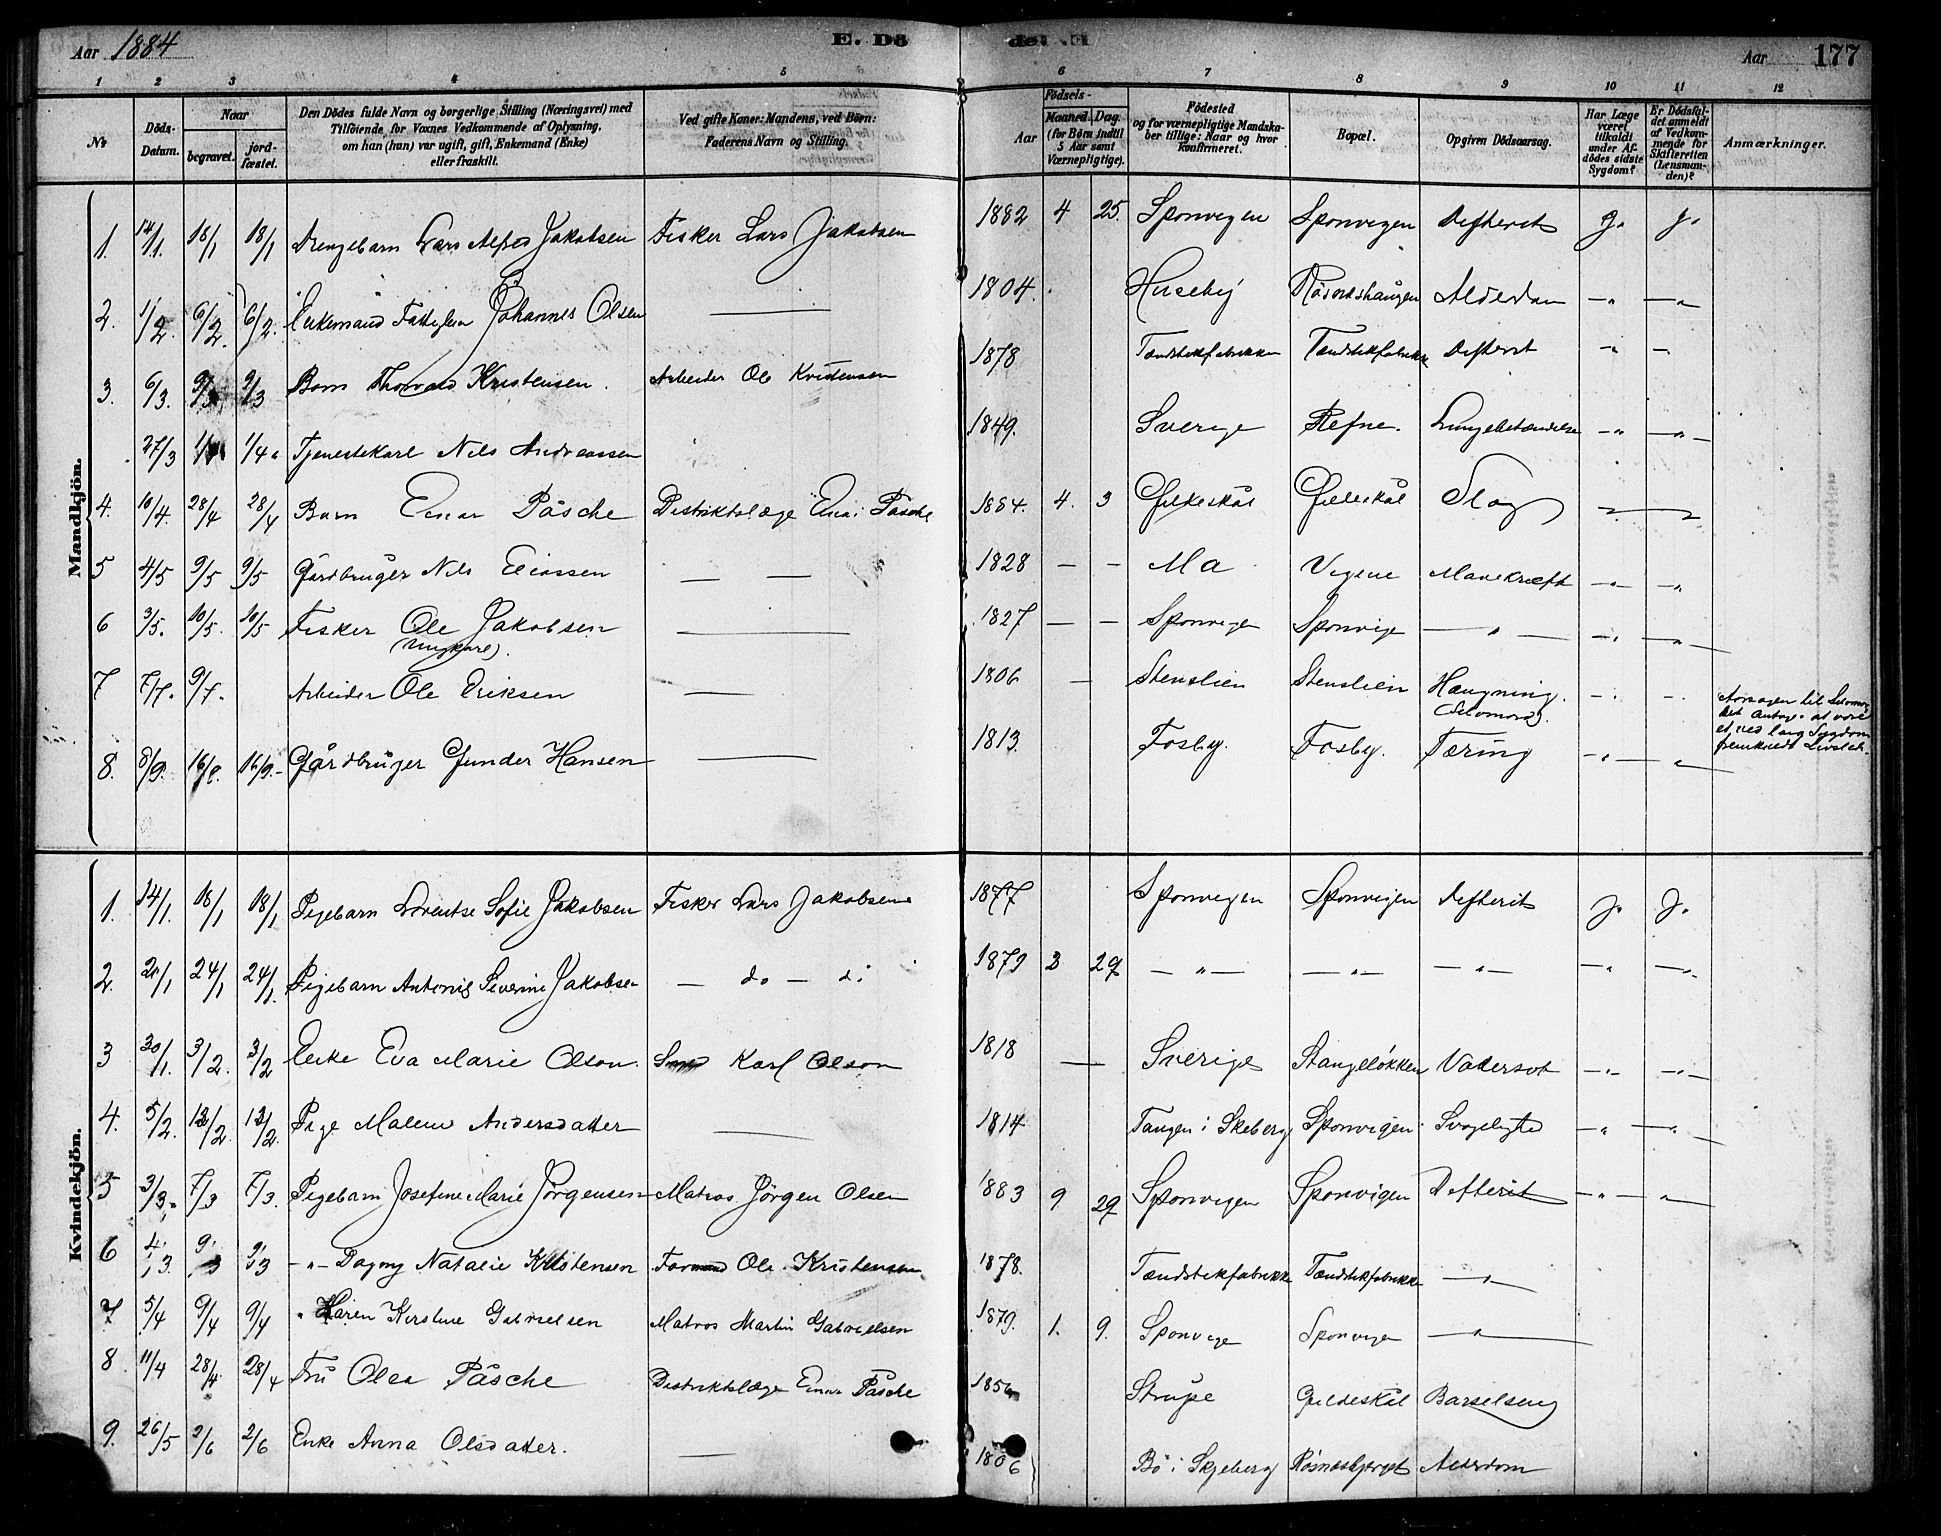 Aar 1884 E. Dö de. E. Aar 177
1 2 3 4 5 6 7 8 9 10 11 12
No Döds-Datum. Naar begravet. jordfæstet. Den Dödes fulde Navn og borgerlige Stilling (Næringsvei) med Tilföiende for Voxnes Vedkommende af Oplysning, om han (hun) var ugift, gift, Enkemand (Enke) eller fraskilt. Ved gifte Koner: Mandens, ved Börn: Faderens Navn og Stilling. Födsels- Aar Maaned. Dag. (for Börn indtil 5 Aar samt Værnepligtige). Födested og for værnepligtige Mandskaber tillige: Naar og hvor konfirmeret. Bopæl. Opgiven Dödsaarsag. Har Læge været tilkaldt under Afdödes sidste Sygdom? Er Dödsfaldet anmeldt af Vedkommende for Skifteretten (Lensmanden)? Anmærkninger.
Mandkjön.
1. 14/1. 18/1 18/1 Drengebarn Lars Alfred Jakobsen Fisker Lars Jakobsen 1882 4 25. Sponvigen Sponvigen Defterit J. J.
2. 1/2. 6/2. 6/2. Enkemand Fattiglem Johannes Olsen — 1804. Huseby Alderdom -"- -"-
3. 6/3. 9/3 9/3 Barn Thorvald Kristensen. Arbeider Ole Kristensen 1878 Tændstikfabrikken Tændstikfabrikk Defterit -"- -
27/3 1/4 Tjenestekarl Nils Andreassen 1849. Sverige Refne. Lungebetændelse -"- -"-
4. 10/4. 28/4 28/4 Barn Einar Påsche Distriktslæge Einar Påsche 1884. 4. 3 Gildeskål Gildeskål Slag
5 4/5 9/5 9/5 Gårdbruger Nils Eliassen — — 1828 — — Ma Vigene Mavekræft -"- -"-
6 3/5. 10/5. 10/5 Fisker Ole Jakobsen (Ungkarl). — 1827 — — Sponvigen Sponvige — " — -"- -"-
7 7/7. 9/7. Arbeider Ole Eriksen — 1806 — Stenslien Stenslien Hængning. (Selvmord). Aarsagen til Selvmor det antag. at være et, ved lang Sygdom fremkaldt
8. 8/9. 16/9. 16/9.- Gårdbruger Gunder Hansen — 1813. Fosby. Fosby. Tæring -"- -"-
Kvindekjön.
1. 14/1. 18/1 18/1 Pigebarn Lorentse Sofie Jakobsen Fisker Lars Jakobsen 1877 Sponvigen Sponvigen Defterit J. J.
2. 24/1 24/1. Pigebarn Severine Jakobsen — do — do 1879 3 29 — " — — " — — " — -"- -"-
3 30/1. 3/2. 3/2 Enke Eva Marie Olson. Karl Olson 1818 — Sverige Stangeløkken Vadersot -"- -"-
4. 5/2. 12/2. 12/2. Pige Malene Andersdatter — 1814 Tangen i Skeberg Sponvigen -"- -"-
5 3/3. 7/3 7/3. Pigebarn Josefine Marie Jørgensen Matros Jörgen Olsen 1883 9 29 Sponvigen Sponvigen Defterit -"- -"-
6 4/3. 9/3 9/3 -"- Dagny Natalie Kristensen Ole Kristensen 1878. Tændstikfabrikk Tændstikfabrikk — " —
7 5/4 9/4 9/4 " Karen Kirstine Gabrielsen Matros Martin Gabrielsen 1879. 1. 9. Sponvige Sponvigen — " —
8 11/4 28/4. 28/4 Fru Olea Påsche Distriktslæge Einar Påsche Strupe Gildeskål Barselseng
9. 26/5 2/6 2/6 Enke Anna Olsdatter. — 1806 Bö i Skjeberg Røsnæsbjerget Alderdom